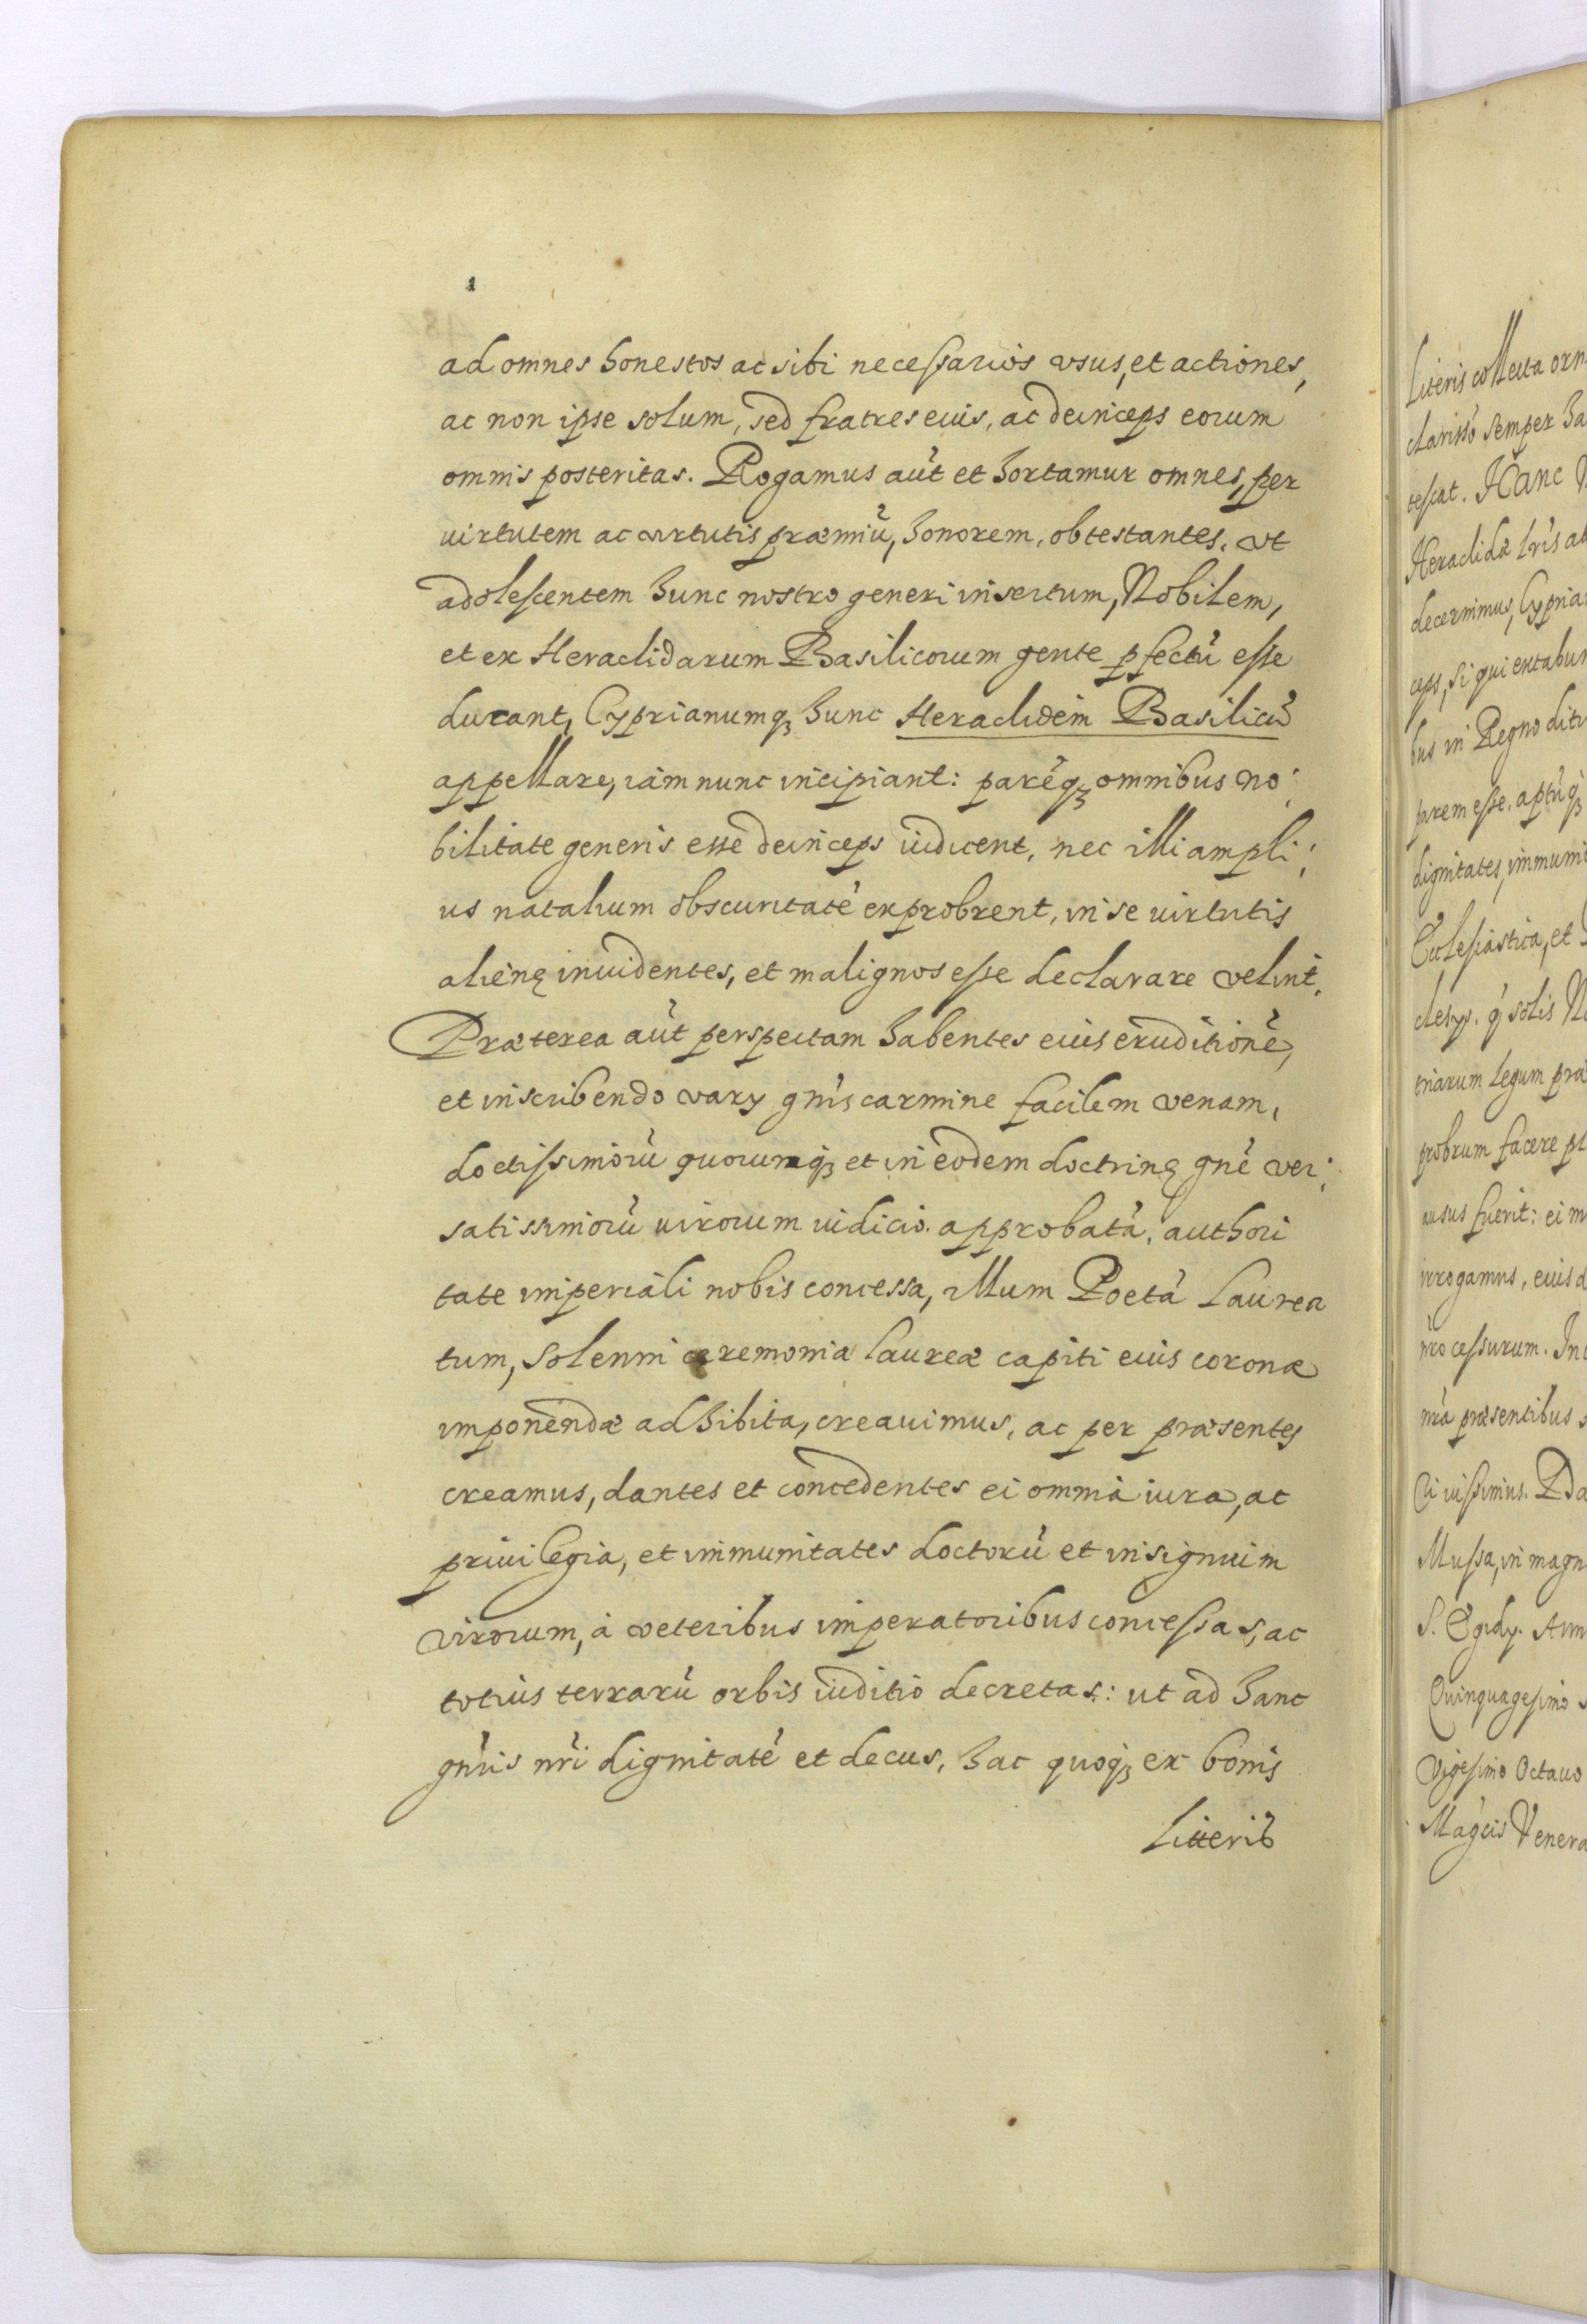 ad omnes honestos ac sibi necessarios usus, et actiones,
ac non ipse solum, sed fratres eius, ac deinceps eorum
omnis posteritas. Rogamus aũt et hortamur omnes, per
uirtutem ac uirtutis præmiũ, honorem, obtestantes, ut
adolescentem hunc nostro generi insertum, Nobilem,
et ex Heraclidarum Basilicorum gente pfectũ esse
ducant, Cyprianumq; hunc Heraclidem Basilicũ
appellare, iam nunc incipiant: parẽq; omnibus no:
bilitate generis esse deinceps iudicent, nec illi ampli:
us natalium obscuritatẽ exprobrent, ni se uirtutis
alienę inuidentes, et malignos esse declarare velint.
Præterea aũt perspectam habentes eius eruditionẽ,
et in scribendo varij gñis carmine facilem venam,
doctissimorũ quorumq; et in eodem doctrinę gñe ver:
satissimorũ uirorum iudicio approbatã, authori
tate imperiali nobis concessa, illum Poetã Laurea
tum, solenni ceremonia laureæ capiti eius coronæ
imponendæ adhibita, creauimus, ac per præsentes
creamus, dantes et concedentes ei omnia iura, ac
priuilegia, et immunitates doctorũ et insignium
virorum, à veteribus imperatoribus concessas, ac
totius terrarũ orbis iuditio decretas: ut ad hanc
gñris nr̃i dignitatẽ et decus, hac quoq; ex bonis
Litteris
Literis collecta orn
clariss̃o semper ha
tescat. Hanc
Heraclidæ lr̃is
decernimus, Cypria
ceps, si qui extabun
bus in Regno diti
parem esse, aptũq;
dignitates, immuni
Ecclesiastica, et
clesijs. q̃ solis
triarum legum præ
probrum facere
ausus fuerit: ei
irrogamus, eius
nr̃o cessurum. In
nr̃a præsentibus
ci iussimus.
Mussa, in magn
S. Egidij.
Quinquagesimo
Vigesimo Octauo
Mag̃cis Venera